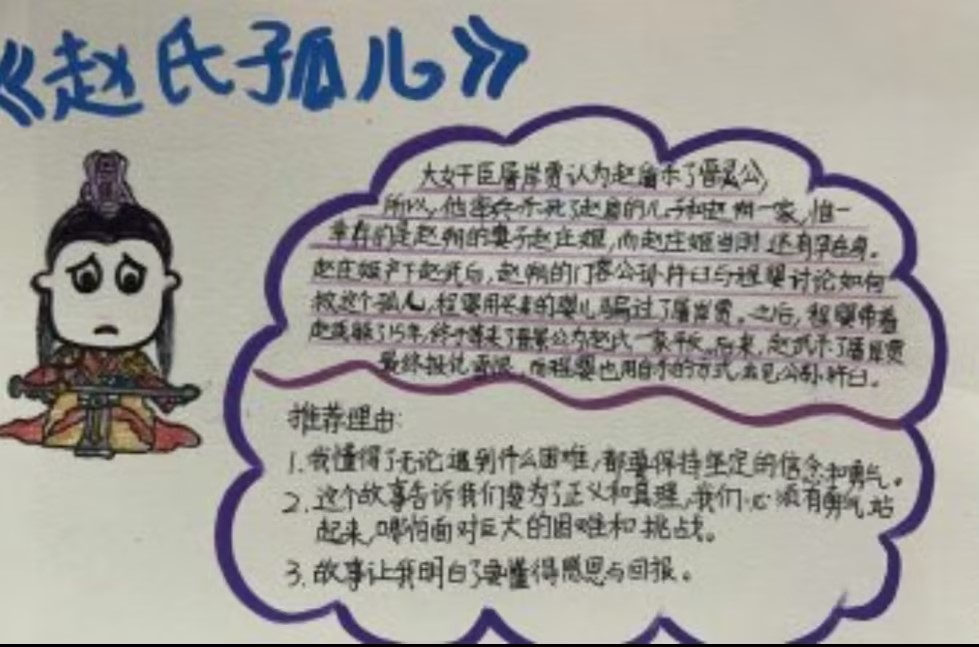 《赵氏孤儿》
大奸臣屠岸贾认为赵盾杀了晋灵公,
所以,他密兵杀死了赵盾的儿子和赵朔一家,惟一
幸存的是赵朔的妻子赵庄姬,而赵庄姬当时还有孕在身。
赵庄姬产下赵武后,赵朔的门客公孙杵臼与程婴讨论如何
救这个孤儿,程婴用买来的婴儿骗过了屠岸贾。之后,程婴带着
赵武躲了15年,终于等来了晋景公为赵氏一家平反。后来,赵武杀了屠岸贾
最终报仇雪恨,而程婴也用自杀的方式去见公孙杵臼。
推荐理由:
1.我懂得了无论遇到什么困难,都要保持坚定的信念和勇气。
2.这个故事告诉我们要为了正义和真理,我们必须有勇气站
起来,哪怕面对巨大的困难和挑战。
3.故事让我明白了要懂得感恩与回报。